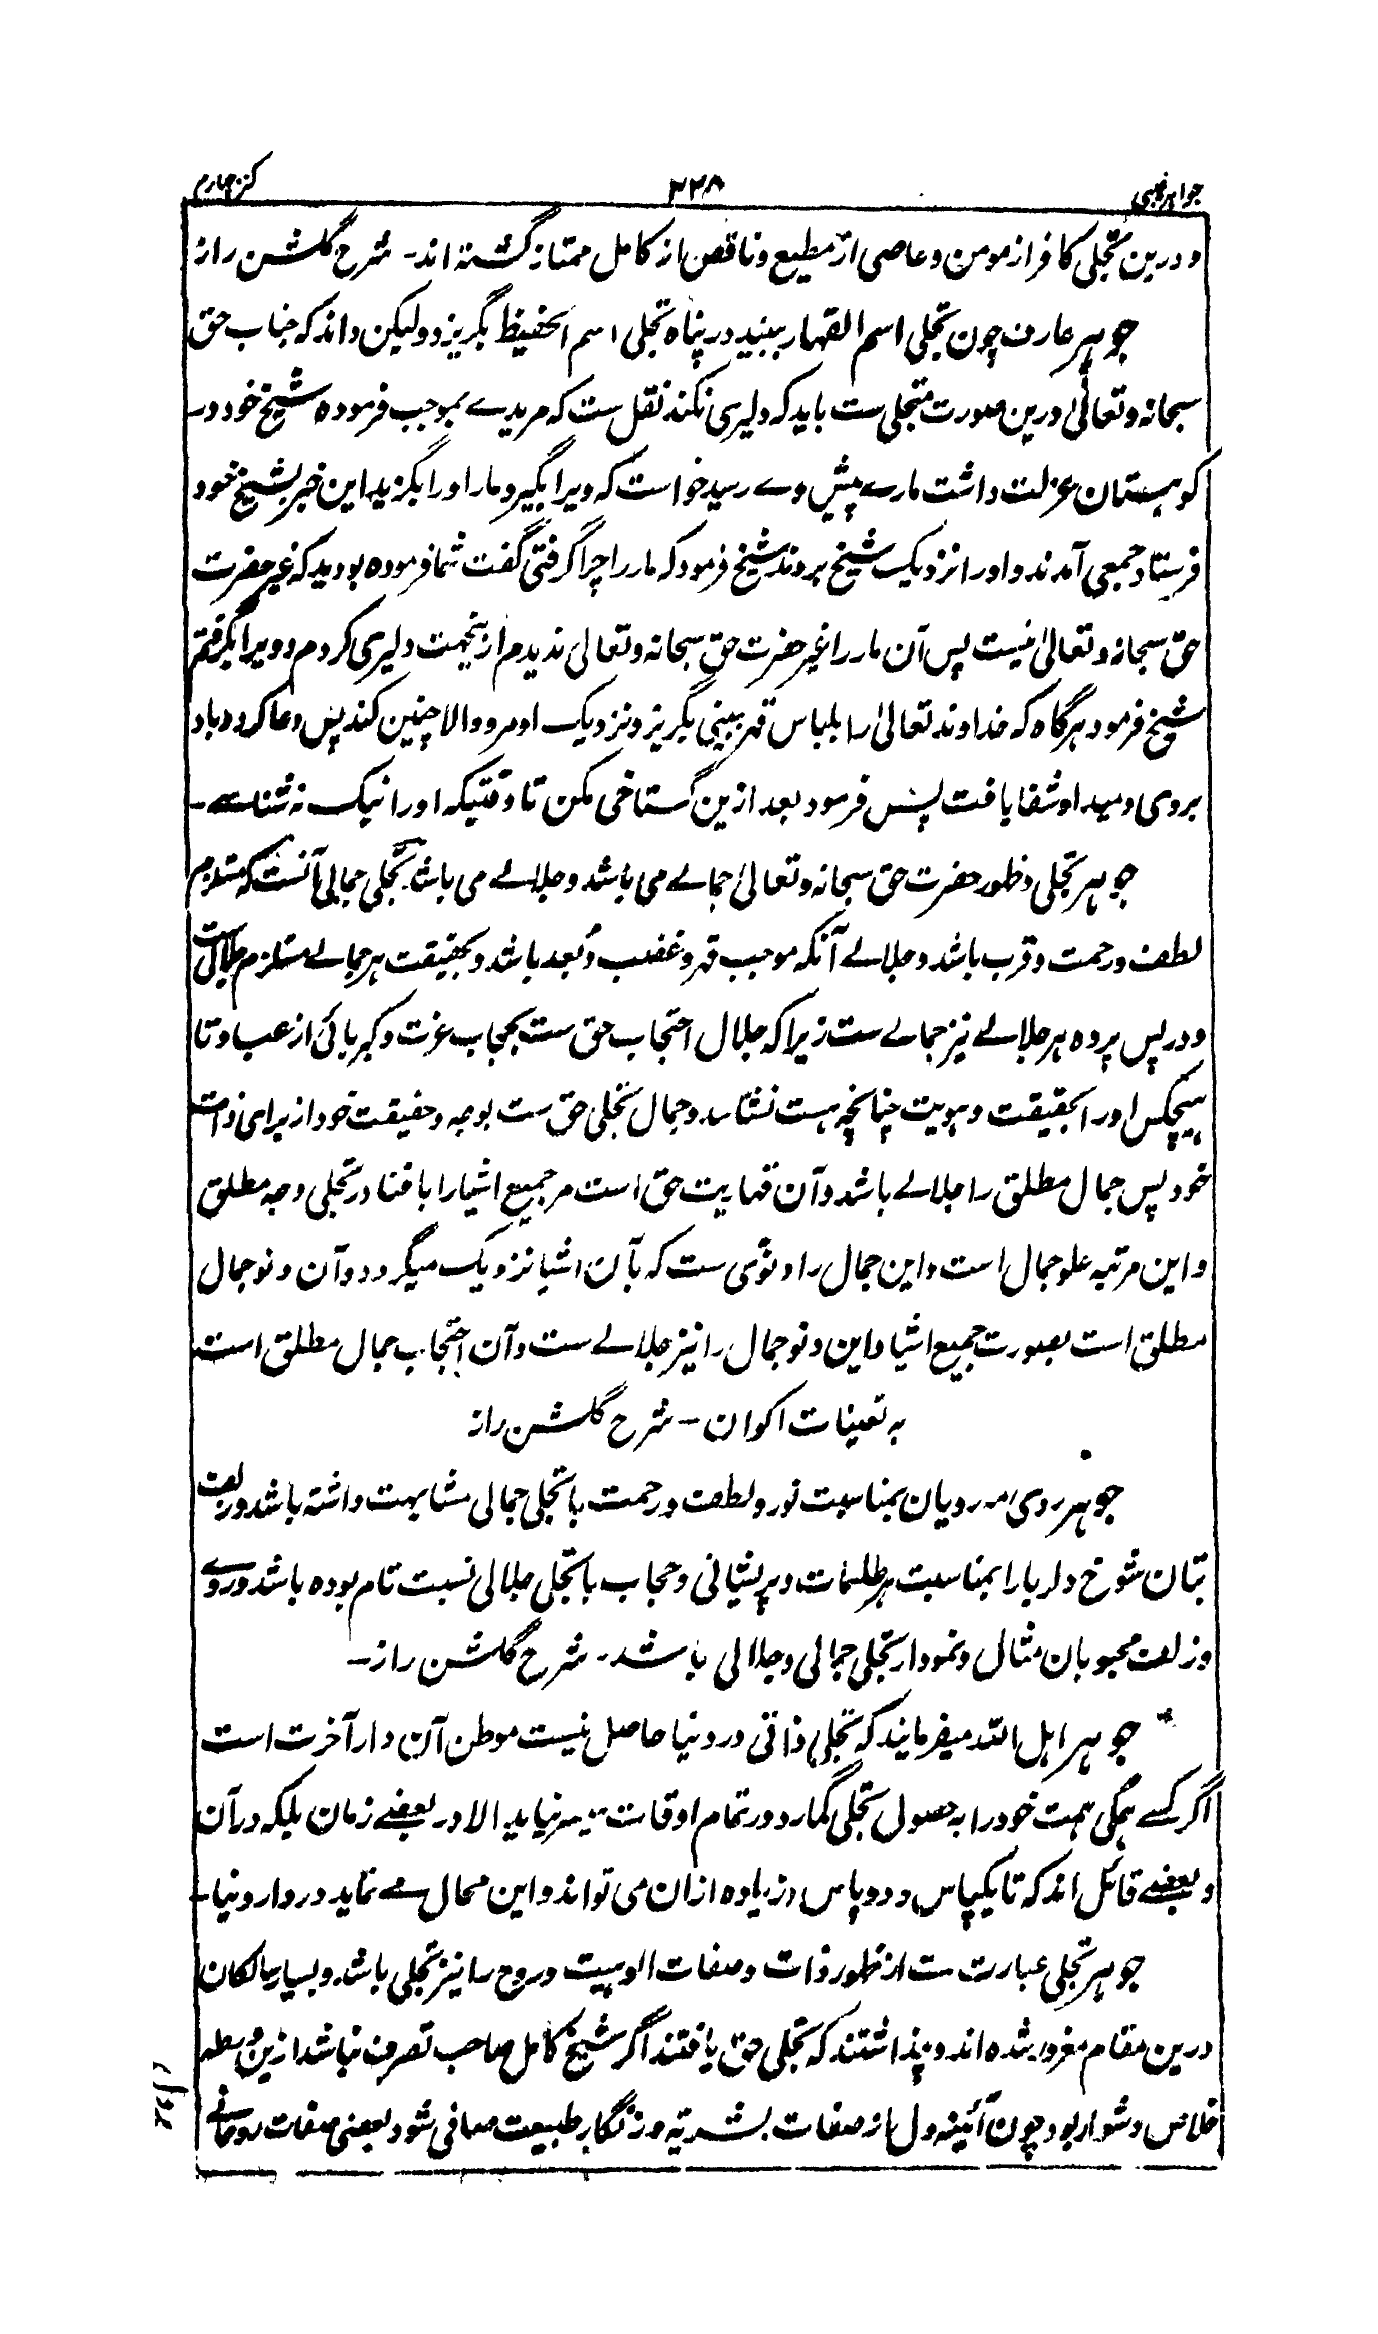 جواہر غیبی ۳۲۸ کنز چہارم
و درین تجلی کافر از مومن و عاصی از مطیع و ناقص از کامل ممتاز گشتہ اند۔ شرح گلشن راز
جوہر عارف چون تجلی اسم القہار ببیند در پناہ تجلی اسم الحفیظ بگریزد و لیکن داند کہ جناب حق
سبحانہ و تعالیٰ درین صورت متجلی ست باید کہ دلیری نکند نقل ست کہ مریدے بموجب فرمودہ شیخ خود در
کوہستان عزلت داشت مارے پیش وے رسید خواست کہ ویرا بگیرد مار او را بگزید این خبر بشیخ خود
فرستاد جمعی آمدند و او را نزدیک شیخ بردند شیخ فرمود کہ مار را چرا گرفتی گفت شما فرمودہ بودید کہ غیر حضرت
حق سبحانہ و تعالیٰ نیست پس آن مار را غیر حضرت حق سبحانہ و تعالیٰ ندیدم ازینجہت دلیری کردم و ویرا بگرفتم
شیخ فرمود ہرگاہ کہ خداوند تعالیٰ را بلباس قہر ببینی بگریز و نزدیک او مرو والا چنین کند پس دعا کرد و باد
بروی دمید او شفا یافت پس فرمود بعد ازین گستاخی مکن تا وقتیکہ او را نیک نہ شناسے۔
جوہر تجلی و ظہور حضرت حق سبحانہ و تعالیٰ جمالے می باشد و جلالے می باشد تجلی جمالی آنست کہ مستلزم
لطف و رحمت و قرب باشد و جلالے آنکہ موجب قہر و غضب و بُعد باشد و بحقیقت ہر جمالے مستلزم جلالی ست
و در پس پردہ ہر جلالے نیز جمالے ست زیرا کہ جلال احتجاب حق ست بحجاب عزت و کبریائی از عباد تا
ہیچکس او را بحقیقت و ہویت چنانچہ ہست نشناسد و جمال تجلی حق ست بوجہ و حقیقت خود از برای ذات
خود پس جمال مطلق را جلالے باشد و آن قہاریت حق است مر جمیع اشیا را با فنا در تجلی وجہ مطلق
و این مرتبہ علو جمال است و این جمال را دنوّی ست کہ بآن اشیا نزدیک میگردد و آن دنو جمال
مطلق است بصورت جمیع اشیا و این دنو جمال را نیز جلالے ست و آن احتجاب جمال مطلق است
بہ تعینات اکوان ۔ شرح گلشن راز
جوہر روی مہ رویان بمناسبت نور و لطف و رحمت با تجلی جمالی مشابہت داشتہ باشد و زلف
بتان شوخ دلربا را بمناسبت ہر ظلمات و پریشانی و حجاب با تجلی جلالی نسبت تام بودہ باشد و روے
و زلف محبوبان مثال و نمودار تجلی جمالی و جلالی باشد۔ شرح گلشن راز۔
جوہر اہل اللہ میفرمایند کہ تجلی ذاتی در دنیا حاصل نیست موطن آن دار آخرت است
اگر کسے ہمگی ہمت خود را بہ حصول تجلی گمارد در تمام اوقات میسر نیاید الا در بعضے زمان بلکہ در آن
و بعضے قائل اند کہ تا یکپاس و دو پاس و زیادہ ازان می تواند و این محال مے نماید در دار دنیا۔
جوہر تجلی عبارت ست از ظہور ذات و صفات الوہیت و روح را نیز تجلی باشد و بسیار سالکان
درین مقام مغرور شدہ اند و پنداشتند کہ تجلی حق یافتند اگر شیخ کامل صاحب تصرف نباشد ازین ورطہ
خلاص دشوار بود چون آئینہ دل از صفات بشریہ و زنگار طبیعت صافی شود بعضی صفات روحانے